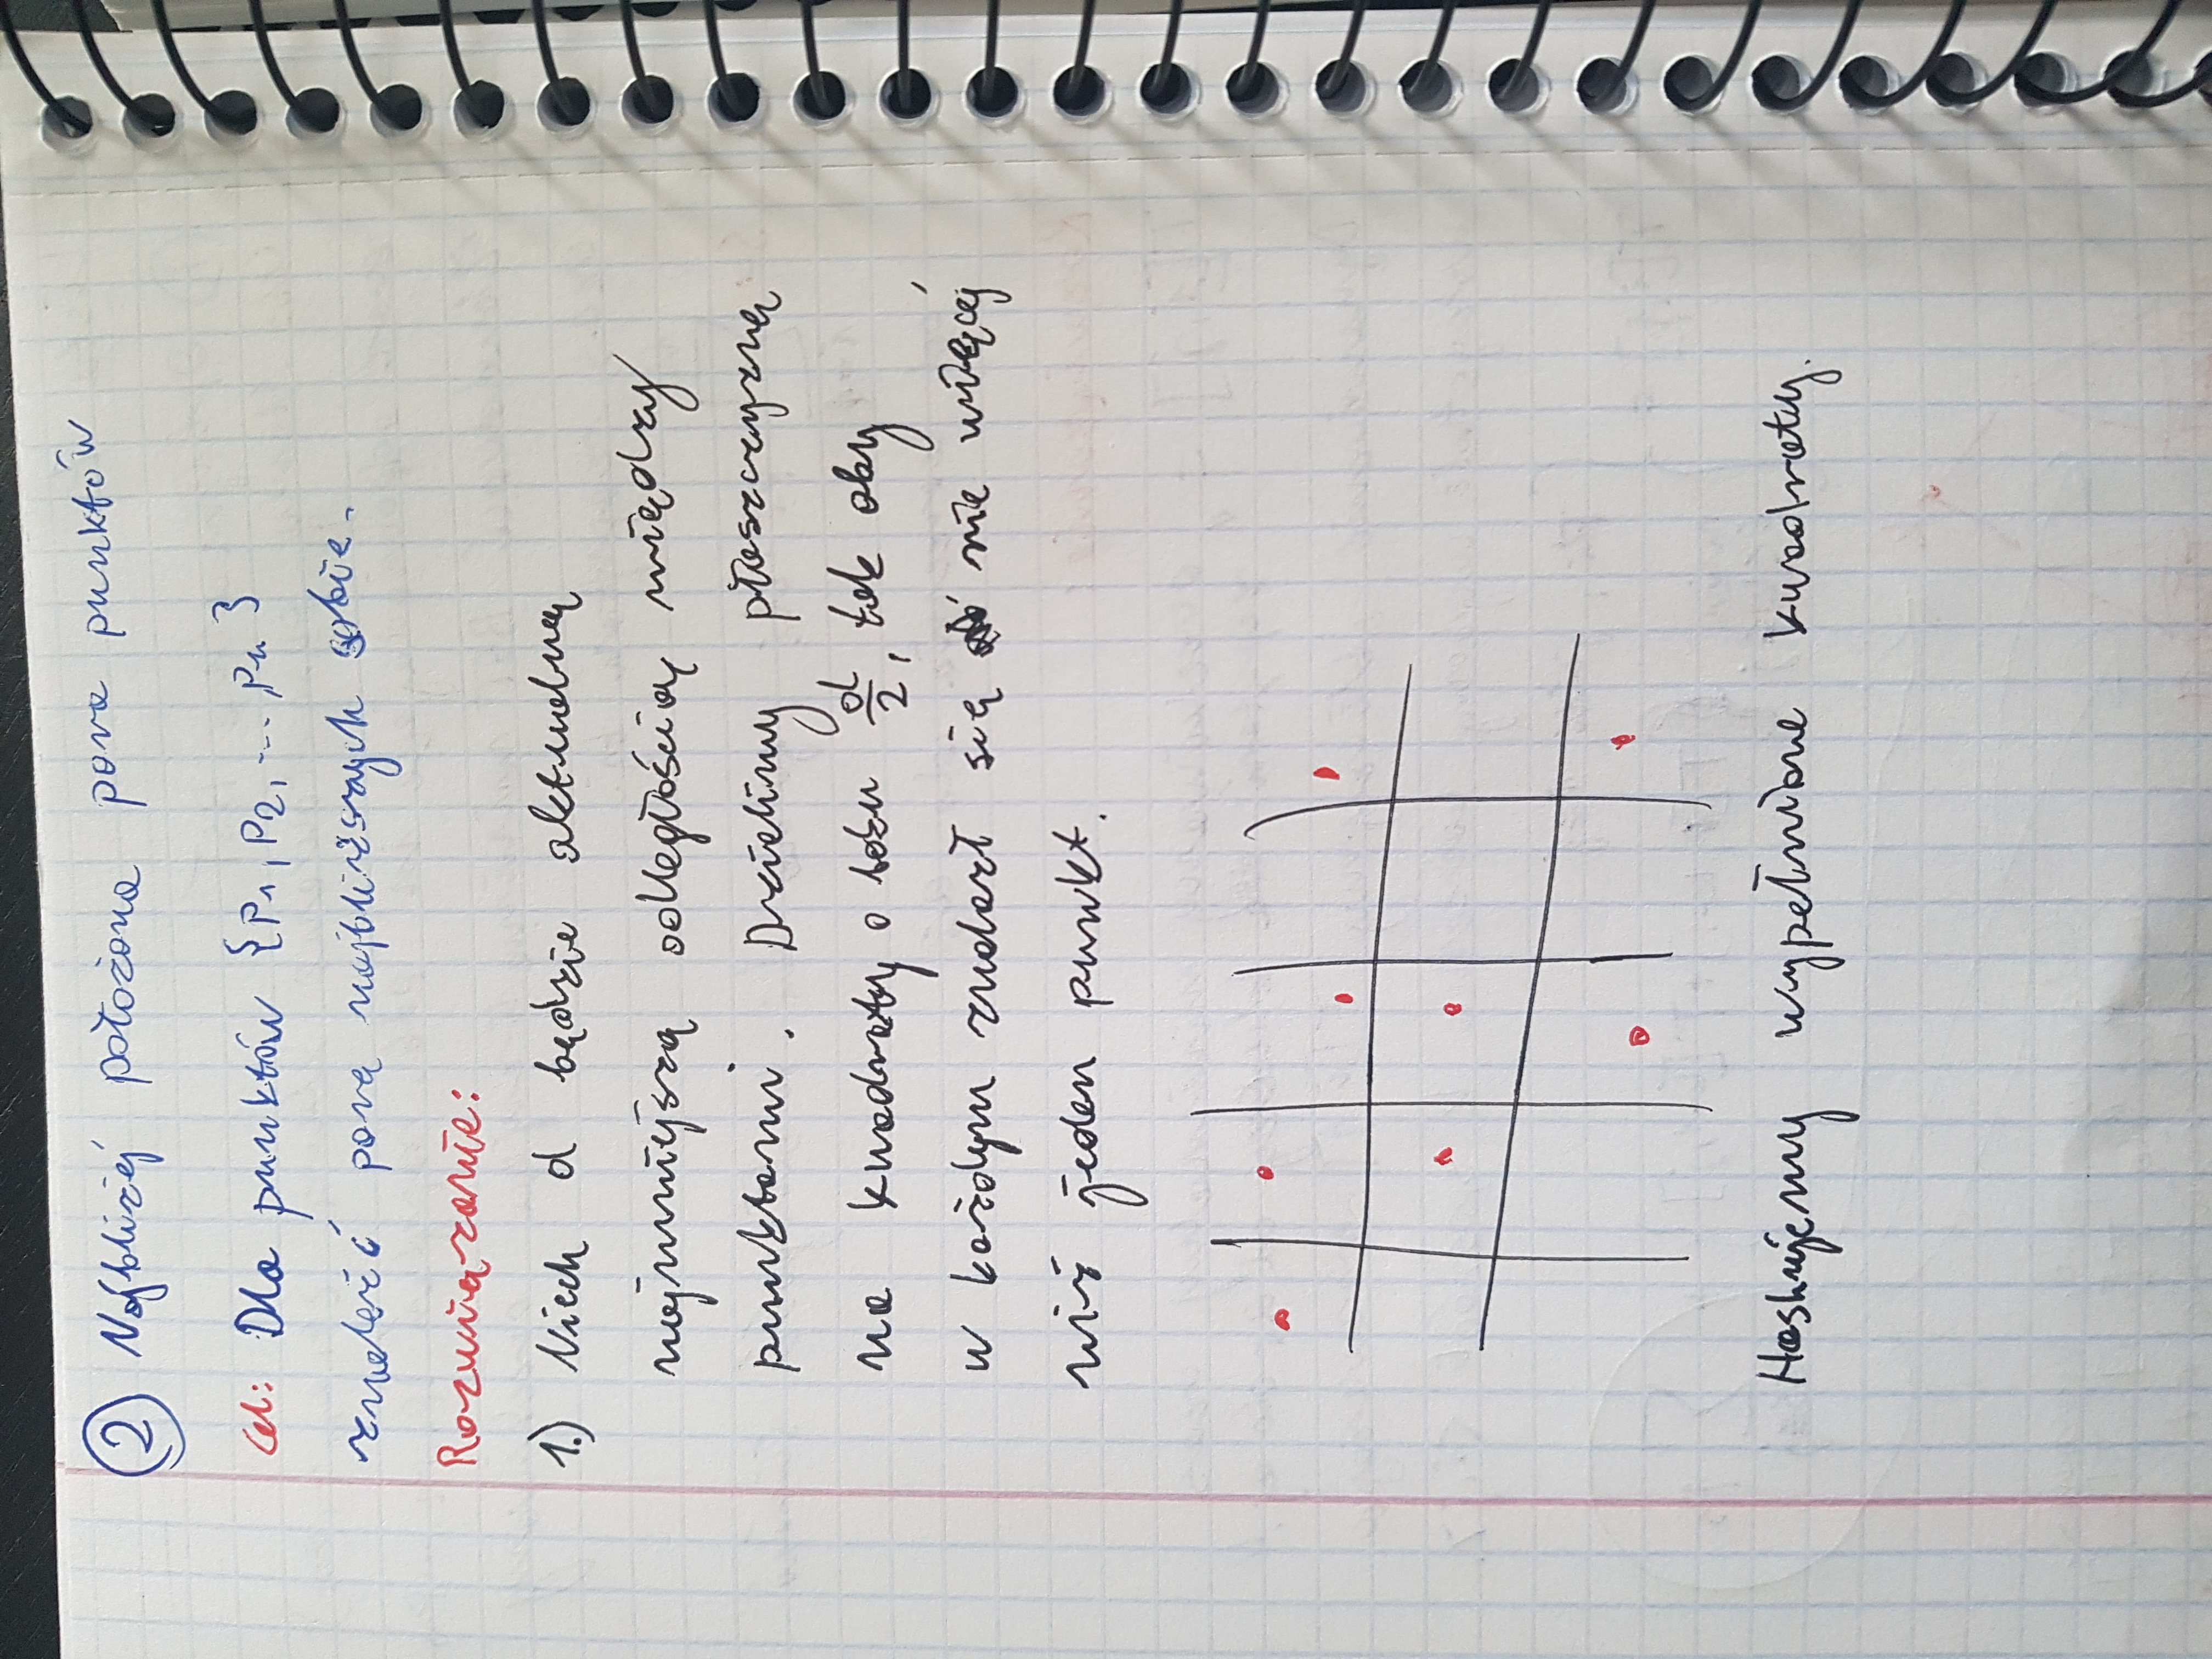 ② Najbliżej położona para punktów
Cel: Dla punktów {P₁, P₂, ..., Pₙ}
znaleźć parę najbliższych sobie.
Rozwiązanie:
1.) Niech d będzie aktualną
najmniejszą odległością między
punktami. Dzielimy płaszczyznę
na kwadraty o boku d/2, tak aby
w każdym znalazł się nie więcej
niż jeden punkt.
Hashujemy wypełnione kwadraty.